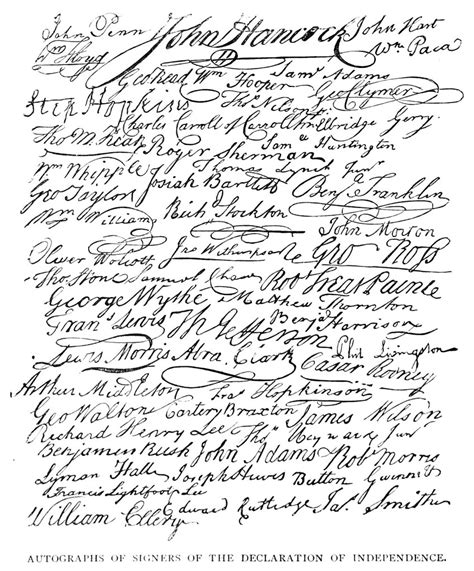 John Penn John Hancock John Hart
Wm Floyd Wm Paca
Geo Read Wm Hooper Saml Adams
Step Hopkins Thos Nelson jr Geo Clymer
Charles Carroll of Carrollton Elbridge Gerry
Tho M:Kean Roger Sherman Sam Huntington
Wm Whipple Thomas Lynch Junr
Geo Taylor Josiah Bartlett Benj Franklin
Wm Williams Richd Stockton
John Morton
Oliver Wolcott Jno Witherspoon Geo Ross
Tho Stone Samuel Chase Robt Treat Paine
George Wythe Matthew Thornton
Fran Lewis Th Jefferson Benj Harrison
Lewis Morris Abra Clark Phil Livingston
Cæsar Rodney
Arthur Middleton Fras Hopkinson
Geo Walton Carter Braxton James Wilson
Richard Henry Lee Thos Heyward Junr
Benjamin Rush John Adams Robt Morris
Lyman Hall Joseph Hewes Button Gwinnett
Francis Lightfoot Lee
William Ellery Edward Rutledge Jas Smith
AUTOGRAPHS OF SIGNERS OF THE DECLARATION OF INDEPENDENCE.